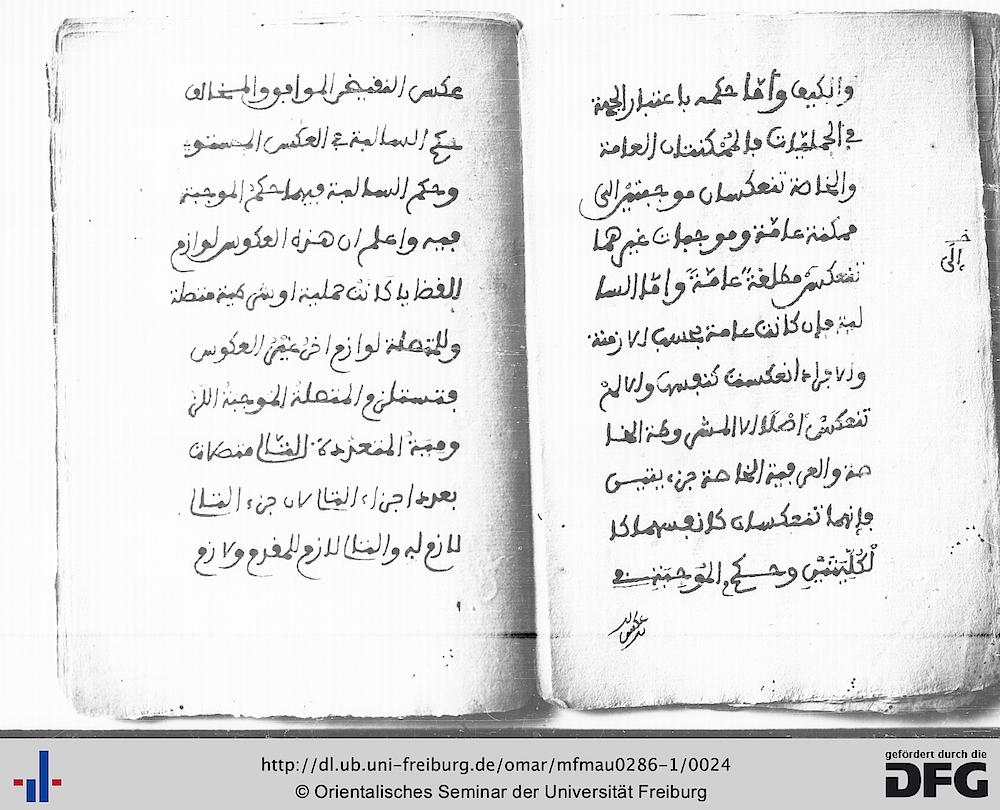 والكيف وأمّا حكمه باعتبار الجهة
في الحمليات فالممكنتان العامة
والخاصة تنعكسان موجبتين الى
ممكنة عامّة وموجبات غيرهما
تنعكس مطلقة عامّة وأمّا السا
لبة فإن كانت عامة بحسب الازمنة
والافراد انعكست كنفسها والا لم
تنعكس أصلا الا المشروطة الخا
صة والعرفية الخاصة جزء يتيس
فإنهما تنعكسان كانفسهما كا
لكليتين وحكم الموجبة في
عكس
إلى
عكس النقيض الموافق والمخالف
حكم السالبة في العكس المستوي
وحكم السالبة فيهما حكم الموجبة
فيه واعلم ان هذه العكوس لوازم
للقضايا كانت حملية او شرطية متصلة
وللمتصلة لوازم اخر غير العكوس
فتستلزم المتصلة الموجبة اللز
ومية المتعددة التالي متصلات
بعدد اجزاء التالي لان جزء التالي
لازم له والتالي لازم للمقدم ولازم
http://dl.ub.uni-freiburg.de/omar/mfmau0286-1/0024
© Orientalisches Seminar der Universität Freiburg
gefördert durch die
DFG